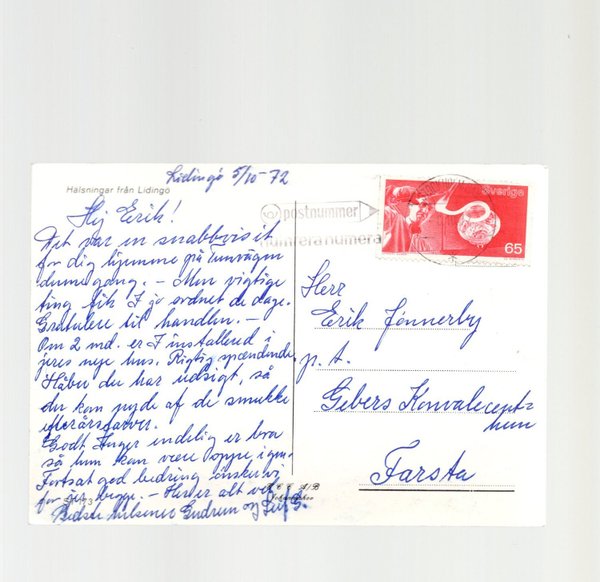 Lidingö 5/10-72
Hälsningar från Lidingö
Hej Erik!
Det var en snabbvisit
for dig hjemme på
dumegang. - Men vigtige
ting fik I jo ordnet de dage.
Gratulere til handlen. -
Om 2 md. er I installerd i
jeres nye hus. Rigtig spændende,
Håber du har udsigt, så
du kan nyde af de smukke
efterårsfarver.
Godt Inger endelig er bra
så hun kan være oppe igen.
Fortsat god bedring ønsker vi
for jer begge. - Her er alt vel
Bedste hilsener Gudrun og Leif S.
postnummer
numrera numera
Sverige
65
Herr
Erik Jonnerby
p. t.
Gebers Konvalecent=
hem
Farsta